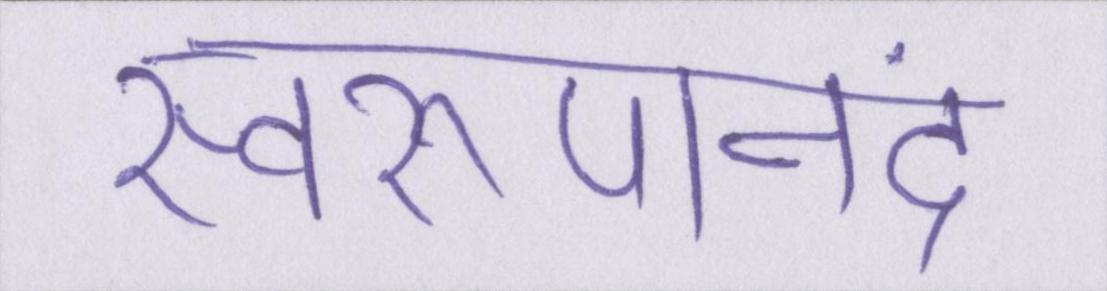 स्वरुपानंद